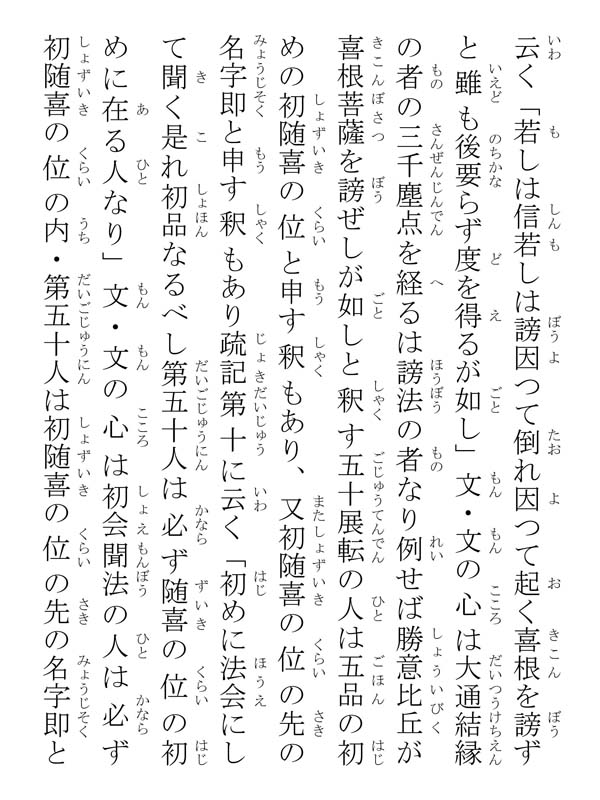 云く「若しは信若しは謗因つて倒れ因つて起く喜根を謗ず
と雖も後要らず度を得るが如し」文・文の心は大通結縁
の者の三千塵点を経るは謗法の者なり例せば勝意比丘が
喜根菩薩を謗ぜしが如しと釈す五十展転の人は五品の初
めの初随喜の位と申す釈もあり、又初随喜の位の先の
名字即と申す釈もあり疏記第十に云く「初めに法会にし
て聞く是れ初品なるべし第五十人は必ず随喜の位の初
めに在る人なり」文・文の心は初会聞法の人は必ず
初随喜の位の内・第五十人は初随喜の位の先の名字即と